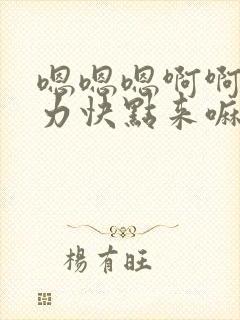 嗯嗯嗯啊啊
力快點来嘛
楊有旺